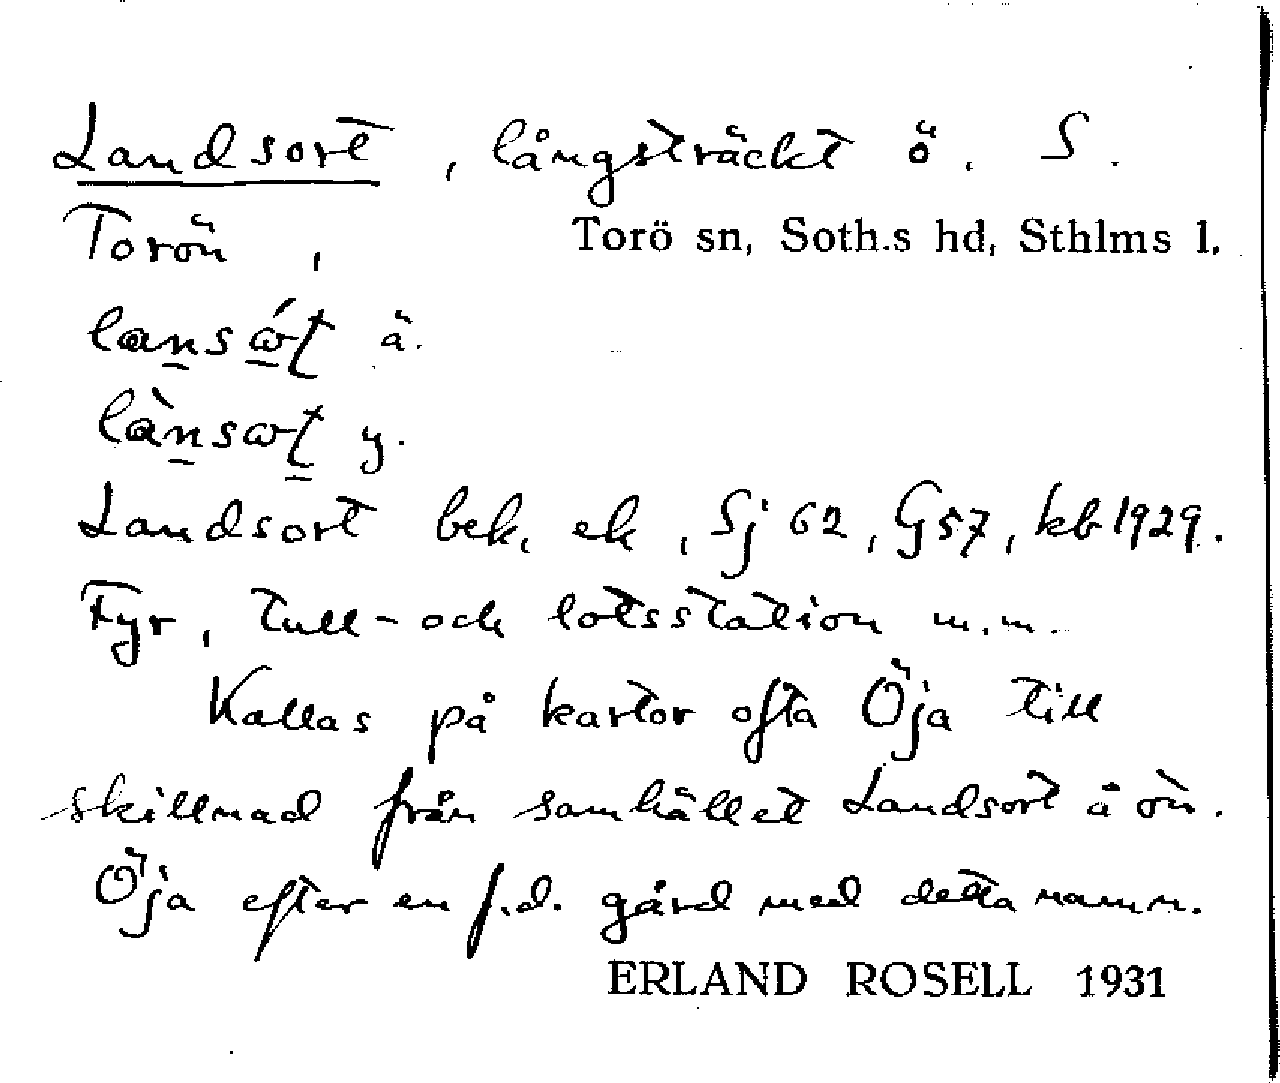 Landsort, långsträckt ö. S.
Torön, Torö sn, Soth.s hd, Sthlms l.
lansɷ́t ä.
lànsɷt y.
Landsort bek. ek, Sj 62, G 57, kb 1929.
Fyr, tull- och lotsstation m.m.
Kallas på kartor ofta Öja till
skillnad från samhället Landsort å ön.
Öja efter en f.d. gård med detta namn.
ERLAND ROSELL 1931